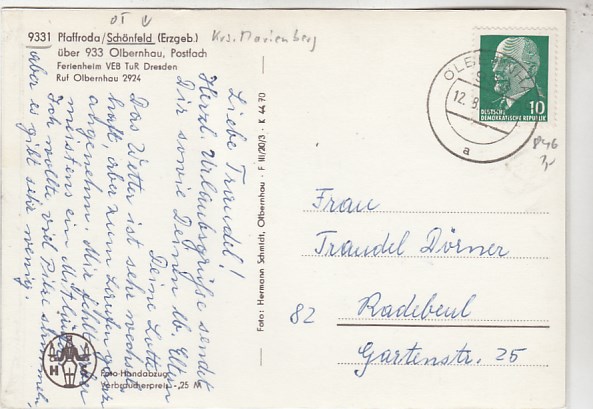 OT
9331 Pfaffroda/Schönfeld (Erzgeb.)
Krs. Marienberg
über 933 Olbernhau, Postfach
Ferienheim VEB TuR Dresden
Ruf Olbernhau 2924
Liebe Traudel!
Herzl. Urlaubsgrüße sendet
Dir sowie Deinen lb. Eltern
Deine Lotte
Das Wetter ist sehr wechsel-
haft, aber zum Laufen ganz
angenehm. Mir fehlt aber
meistens ein
Ich wollte viel Pilze
aber es gibt sehr wenig.
Foto: Hermann Schmidt, Olbernhau · F III/20/3 · K 44 70
OLBERNH
12. 8
a
10
DEUTSCHE
DEMOKRATISCHE REPUBLIK
Frau
Traudel Dörner
82 Radebeul
Gartenstr. 25
H S
Foto-Handabzug
Verbraucherpreis -,25 M